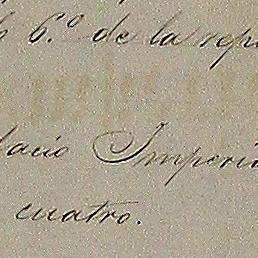 6.º de la repú
lacio Imperia
cuatro.